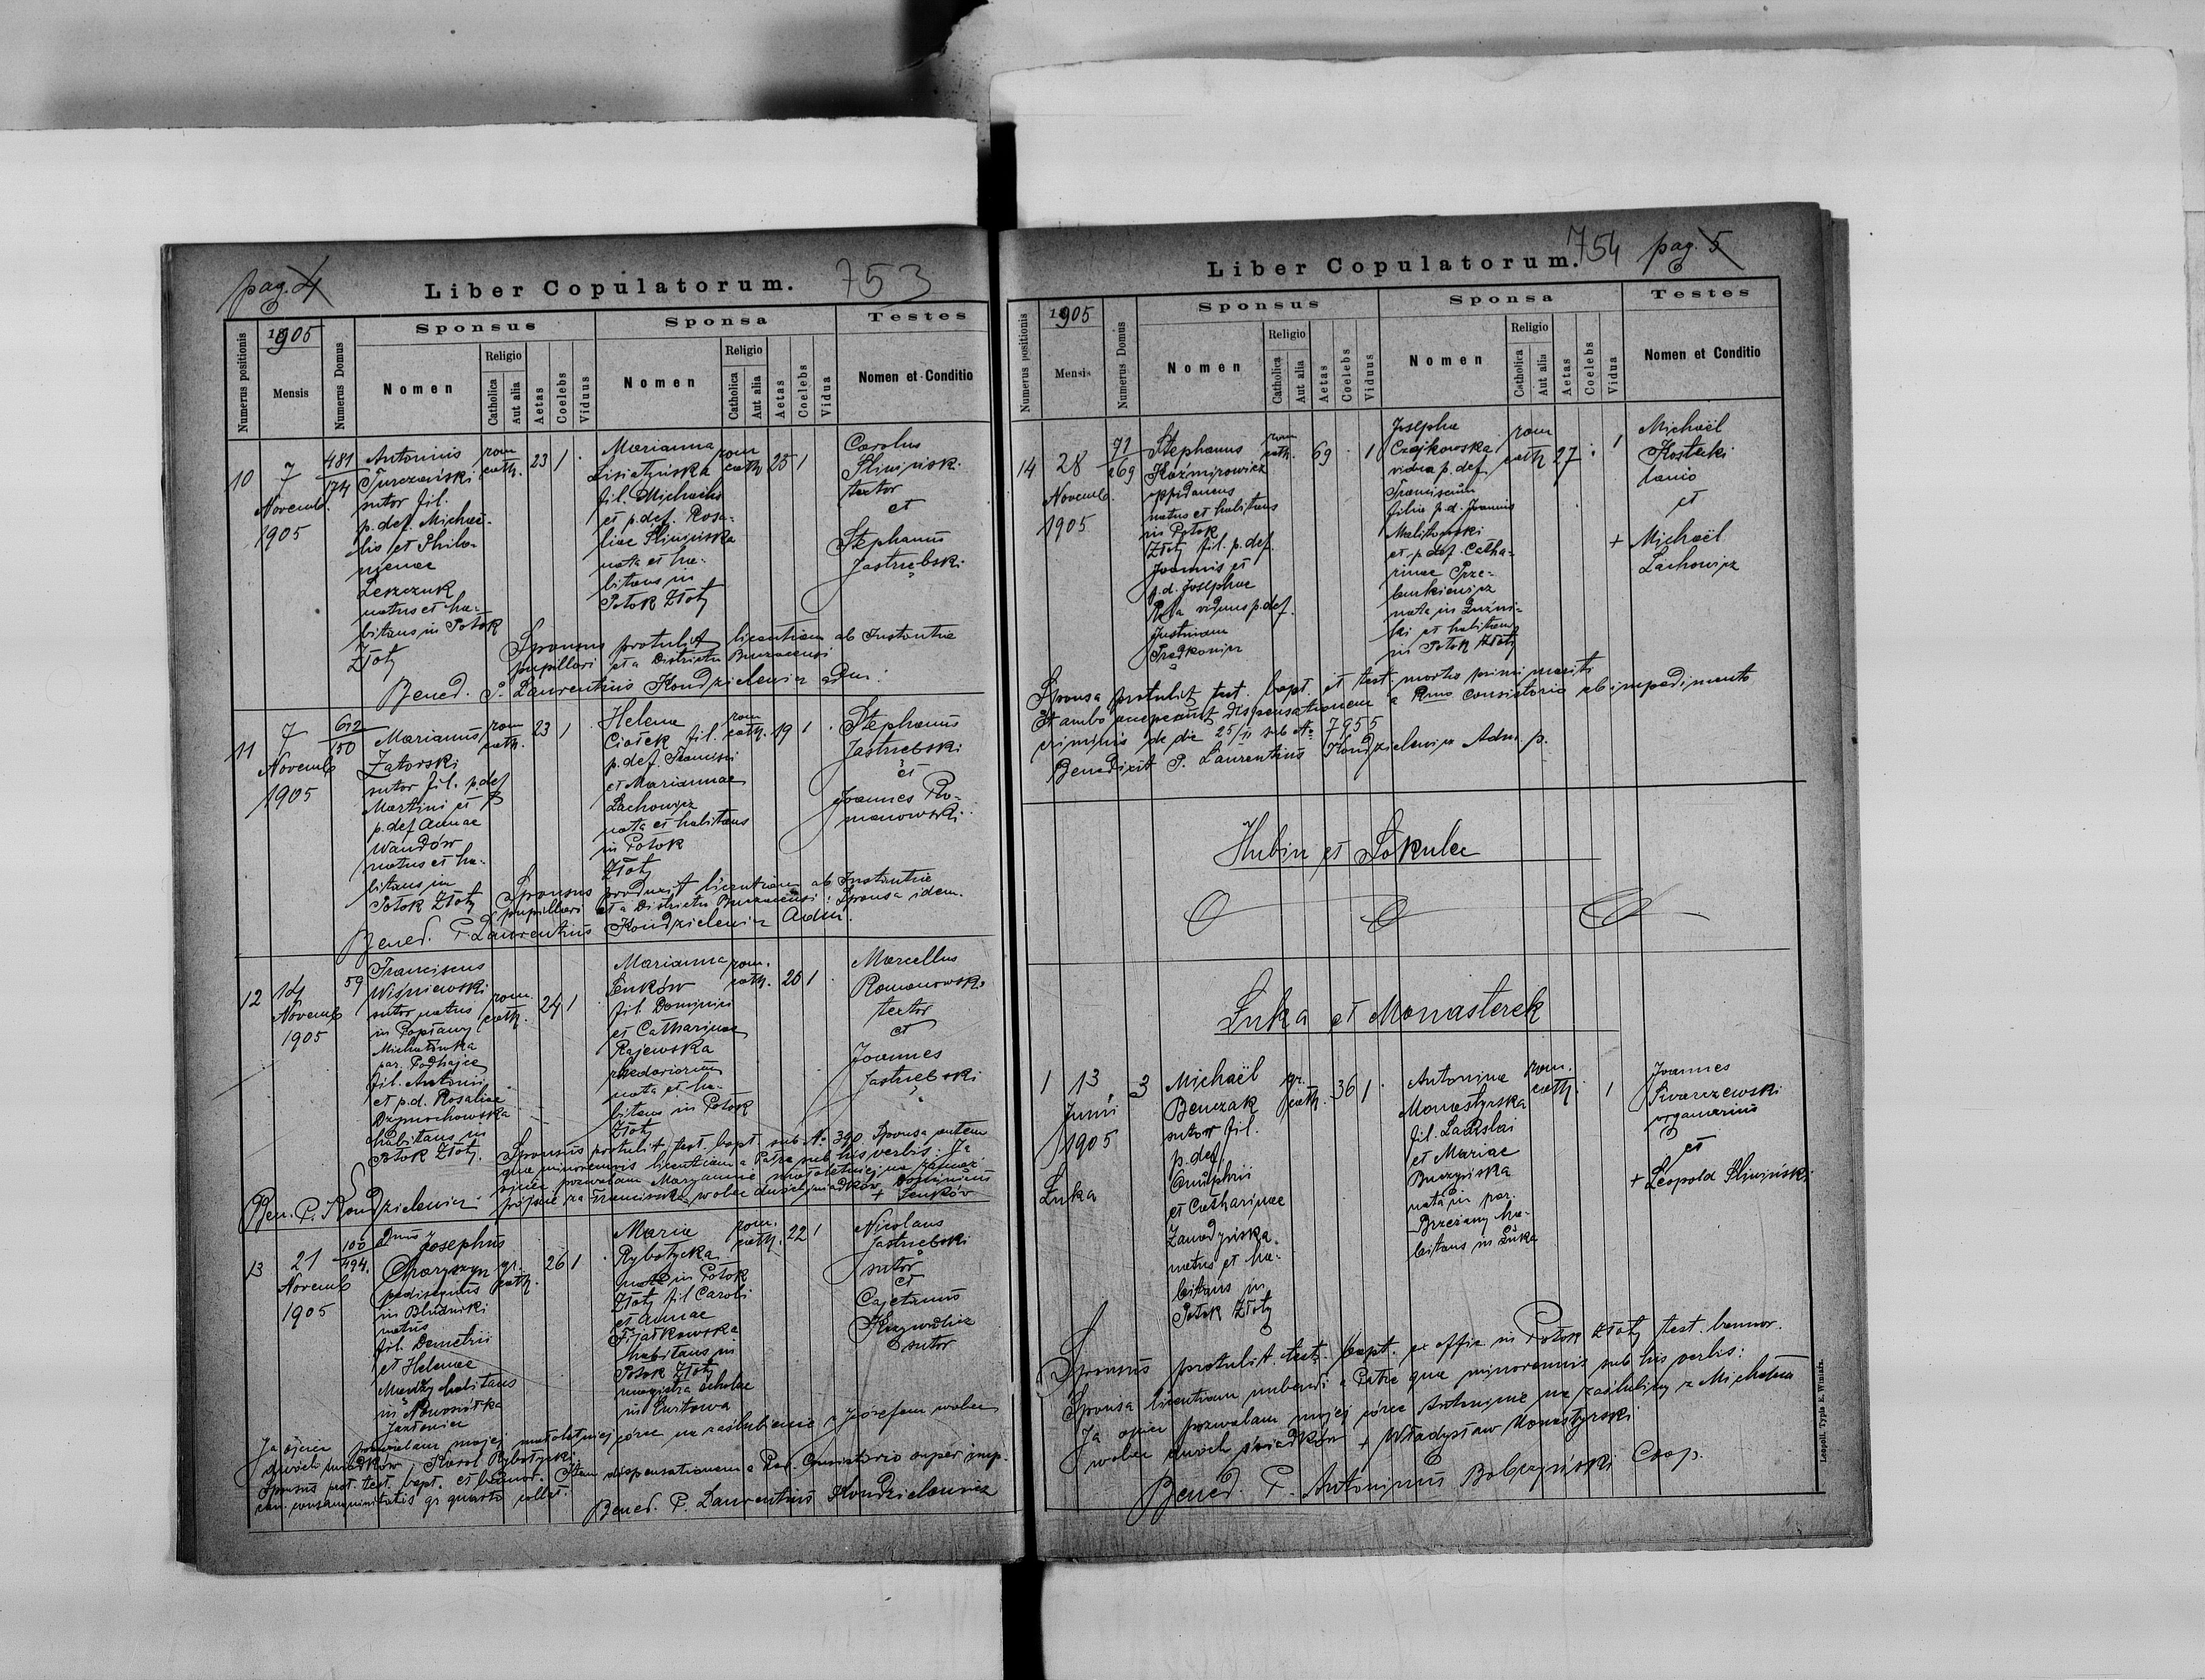 pag. 4
Liber Copulatorum.
753
Numerus positionis
1905
Mensis
Numerus Domus
Sponsus
Nomen
Religio
Catholica
Aut alia
Aetas
Coelebs
Viduus
Sponsa
Nomen
Religio
Catholica
Aut alia
Aetas
Coelebs
Vidua
Testes
Nomen et Conditio
10
7
Novemb.
1905
481
174
Antonius
Turczański
sutor fil.
p. def. Michaë-
lis et Philo-
menae
Leszczuk
natus et ha-
bitans in Potok
Złoty
rom
cath.
23
1
Marianna
Lisiatyńska
fil. Michaelis
et p. def. Rosa-
liae Śliwińska
nata et ha-
bitans in
Potok Złoty
rom
cath
25
1
Carolus
Śliwińsk.
textor
et
Stephanus
Jastrzębski
Sponsus protulit licentiam ab Instantia
pupillari et a Districtu Buczacensi
Bened. P. Laurentius Kondzielewicz adm.
11
7
Novemb
1905
612
150
Marianus
Zatorski
sutor fil. p. def
Martini et
p. def Annae
Wandów
natus et ha-
bitans in
Potok Złoty
rom
cath.
23
1
Helena
Ciołek fil.
p. def. Francisci
et Mariannae
Lachowicz
nata et habitans
in Potok
Złoty
rom
cath.
19
1
Stephanus
Jastrzebski
et
Joannes Ro-
manowski
Sponsus produxit licentiam ab Instantia
pupillari et a Districtu Buczacensi. Sponsa idem.
Bened. P. Laurentius Kondzielewicz Adm.
12
14
Novemb
1905
59
Franciscus
Wiśniewski
sutor natus
in Popławy
Michałówka
par. Podhajce
fil. Antonii
et p. d. Rosaliae
habitans in
Potok Złoty.
rom.
cath.
24
1
Marianna
Senków
fil. Dominici
et Catharinae
Rajewska
rhedariorum
nata et ha-
bitans in Potok
Złoty
rom.
cath.
20
1
Marcellus
Romanowski
textor
et
Joannes
Jastrzebski
Sponsus protulit test. bapt. sub No 390. Sponsa autem
qua minorennis licentiam a Patre sub his verbis: Ja
ojciec pozwalam Maryannie małoletniej na zamąż-
pójście za Franciszka wobec dwóch świadków Dominicus
+ Senków
Ben. P. Kondzielewicz
13
21
Novemb
1905
100
494.
Dnus Josephus
Charyszyn
pedisequus
in Bludniki
natus
fil. Demetrii
et Helenae
habitans
in Nowosiółka
Jazłowiec
gr.
cath.
26
1
Maria
Rybotycka
nata in Potok
Złoty fil Caroli
et Annae
Fijałkowska
habitans in
Potok Złoty
magistra scholae
in
rom.
cath.
22
1
Nicolaus
Jastrzebski
sutor
et
Cajetanus
Krzywdlic
sutor
Ja ojciec pozwalam mojej małoletniej córce na zaślubienie z Józefem wobec
dwóch świadków, Karol Rybotycki
Sponsus prot. test. bapt. et bannor. Item dispensationem a Rev. Consistorio super imp.
can. consanguinitatis gr quarto collat.
Bened. P. Laurentius Kondzielewicz
Liber Copulatorum.
754
pag. 5
Numerus positionis
1905
Mensis
Numerus Domus
Sponsus
Nomen
Religio
Catholica
Aut alia
Aetas
Coelebs
Viduus
Sponsa
Nomen
Religio
Catholica
Aut alia
Aetas
Coelebs
Vidua
Testes
Nomen et Conditio
14
28
Novemb.
1905
71
269
Stephanus
Kaźmirowicz
oppidanus
natus et habitans
in Potok
Złoty fil. p. def.
Joannis et
p. d. Josephae
viduus p. def.
Justinam
Prądkowicz
rom
cath.
69
1
Josepha
Czajkowska
vidua p. def
Franciscum
filia p. d. Joannis
Malikowski
et p. def. Catha-
rinae Prze-
burkiewicz
nata in
et habitans
in Potok Złoty
rom
cath
27
1
Michaël
Kostecki
lanio
et
+ Michaël
Lachowicz
Sponsa protulit test. bapt. et test. mortis primi mariti
Et ambo acceperunt dispensationem a Rmo Consistorio ab impedimento
criminis de die 25/11 sub No 7955
Benedixit P. Laurentius Kondzielewicz Adm. p.
Hubin et Sokulec
Łuka et Monasterek
1
13
Junii
1905
Łuka
3
Michaël
Benczak
sutor fil.
p. def.
Onuphrii
et Catharinae
Zawadyńska
natus et ha-
bitans in
Potok Złoty
gr.
cath.
36
1
Antonina
Monastyrska
fil. Ladislai
et Mariae
Buczyńska
nata in par.
Brzeżany ha-
bitans in Łuka
rom.
cath.
1
Joannes
Swarczewski
organarius
et
+ Leopold Śliwiński
Sponsus protulit test. bapt. ex offic in Potok Złoty test. bannor.
Sponsa licentiam nubendi a Patre qua minorennis sub his verbis:
Ja ojciec pozwalam mojej córce Antoninie na zaślubiny z Michałem
wobec dwóch świadków + Władysław Monastyrski
Bened. P. Antoninus Bobczyński Coop.
Leopoli. Typis E. Winiarz.